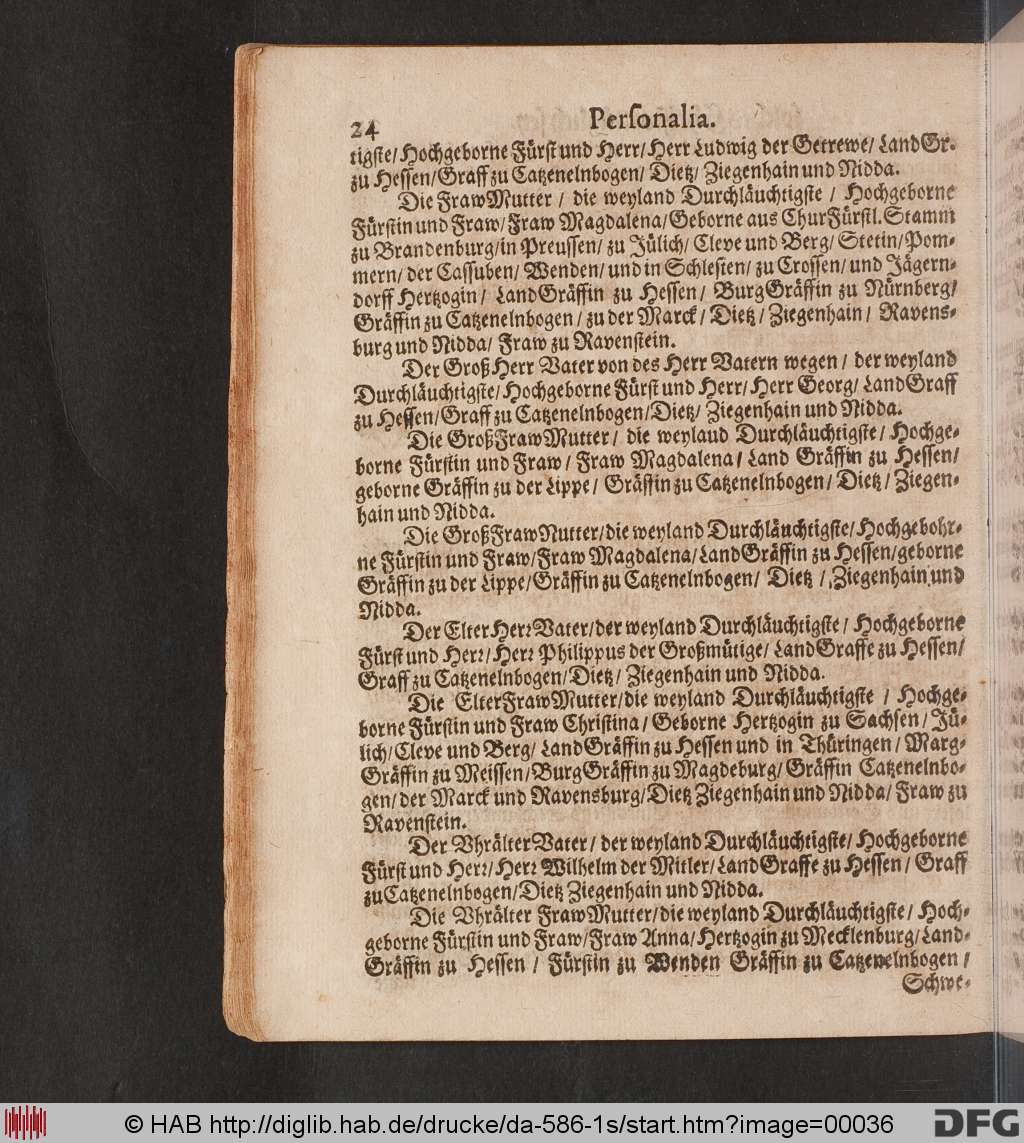 24
Perſonalia.
tigſte/ Hochgeborne Fürſt und Herr/ Herr Ludwig der Getrewe/ LandGr.
zu Heſſen/ Graff zu Catzenelnbogen/ Dietz/ Ziegenhain und Nidda.
Die FrawMutter / die weyland Durchläuchtigſte / Hochgeborne
Fürſtin und Fraw/ Fraw Magdalena/ Geborne aus ChurFürſtl. Stamm
zu Brandenburg/ in Preuſſen/ zu Jülich/ Cleve und Berg/ Stetin/ Pom-
mern/ der Caſſuben/ Wenden/ und in Schleſien/ zu Croſſen/ und Jägern-
dorff Hertzogin/ LandGräffin zu Heſſen/ BurgGräffin zu Nürnberg/
Gräffin zu Catzenelnbogen / zu der Marck / Dietz / Ziegenhain / Ravens-
burg und Nidda/ Fraw zu Ravenſtein.
Der Groß Herr Vater von des Herr Vatern wegen / der weyland
Durchläuchtigſte/ Hochgeborne Fürſt und Herr/ Herr Georg/ LandGraff
zu Heſſen/ Graff zu Catzenelnbogen/ Dietz/ Ziegenhain und Nidda.
Die GroßFrawMutter / die weylaud Durchläuchtigſte/ Hochge-
borne Fürſtin und Fraw/ Fraw Magdalena/ Land Gräffin zu Heſſen/
geborne Gräffin zu der Lippe/ Gräffin zu Catzenelnbogen/ Dietz/ Ziegen-
hain und Nidda.
Die GroßFrawNutter/ die weyland Durchläuchtigſte/ Hochgebohr-
ne Fürſtin und Fraw/ Fraw Magdalena/ LandGräffin zu Heſſen/ geborne
Gräffin zu der Lippe/ Gräffin zu Catzenelnbogen/ Dietz / Ziegenhain und
Nidda.
Der Elter Herꝛ Vater/ der weyland Durchläuchtigſte/ Hochgeborne
Fürſt und Herꝛ/ Herꝛ Philippus der Großmütige/ LandGraffe zu Heſſen/
Graff zu Catzenelnbogen/ Dietz/ Ziegenhain und Nidda.
Die ElterFrawMutter/ die weyland Durchläuchtigſte / Hochge-
borne Fürſtin und Fraw Chriſtina/ Geborne Hertzogin zu Sachſen/ Jü-
lich/ Cleve und Berg/ LandGräffin zu Heſſen und in Thüringen/ Marg-
Gräffin zu Meiſſen/ BurgGräffin zu Magdeburg/ Gräffin Catzenelnbo-
gen/ der Marck und Ravensburg/ Dietz Ziegenhain und Nidda/ Fraw zu
Ravenſtein.
Der VhrälterVater/ der weyland Durchläuchtigſte/ Hochgeborne
Fürſt und Herꝛ/ Herꝛ Wilhelm der Mitler/ LandGraffe zu Heſſen / Graff
zu Catzenelnbogen/ Dietz Ziegenhain und Nidda.
Die Vhrälter FrawMutter/ die weyland Durchläuchtigſte/ Hoch-
geborne Fürſtin und Fraw/ Fraw Anna/ Hertzogin zu Mecklenburg/ Land-
Gräffin zu Heſſen / Fürſtin zu Wenden Gräffin zu Catzenelnbogen /
Schwe-
© HAB http://diglib.hab.de/drucke/da-586-1s/start.htm?image=00036
DFG